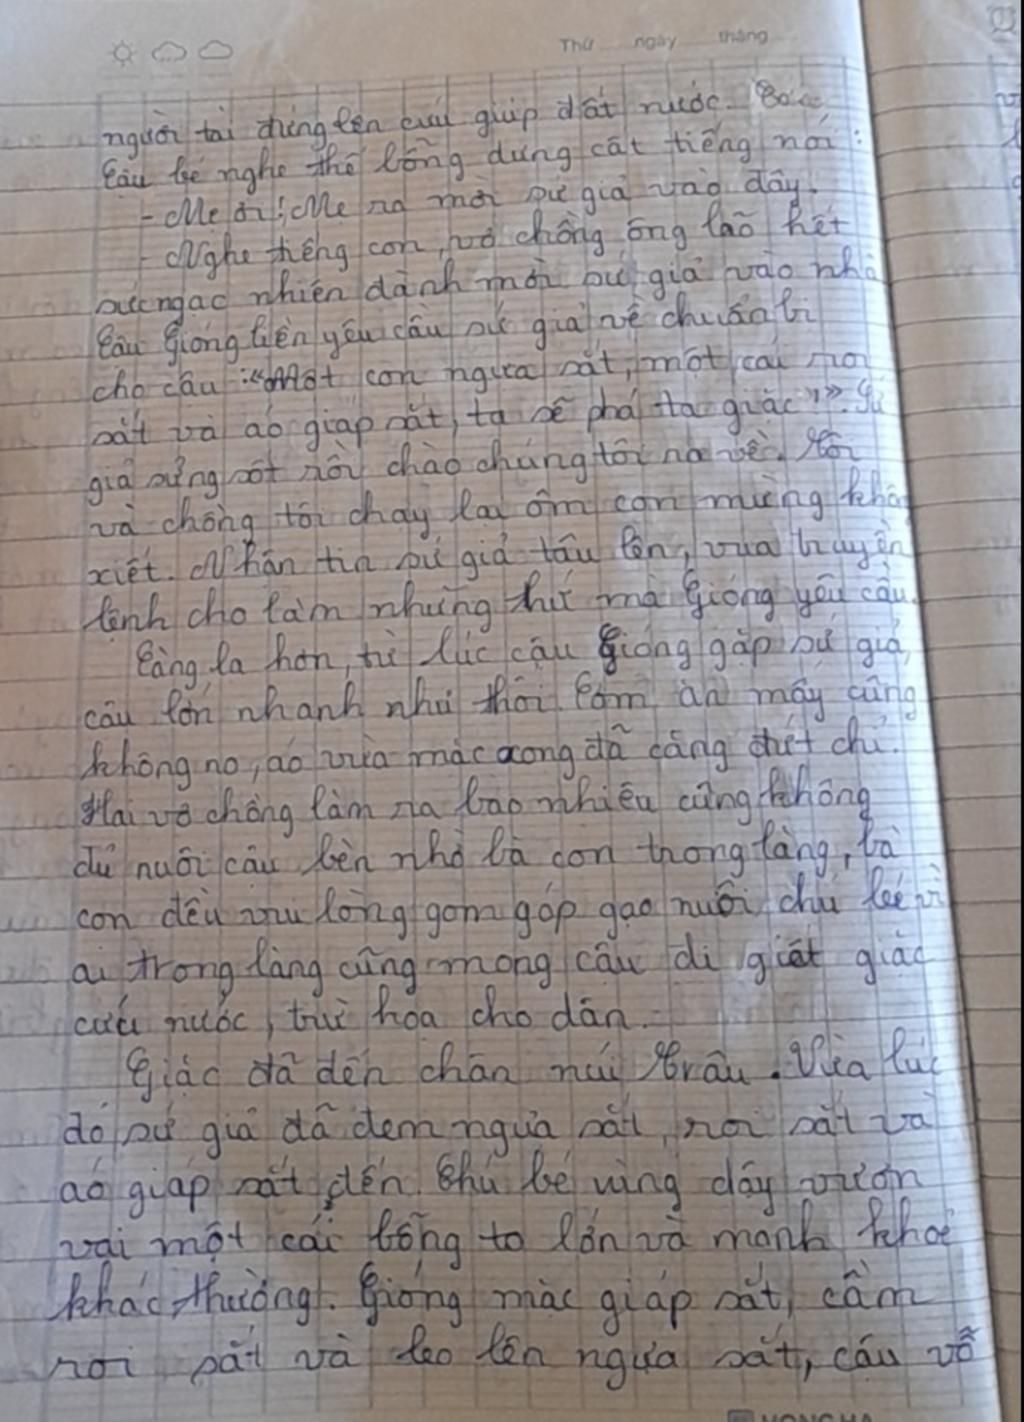 Thứ ngày tháng
người tài đứng lên cứu giúp đất nước.
Cậu bé nghe thế bỗng dưng cất tiếng nói:
- Mẹ ơi! Mẹ ra mời sứ giả vào đây.
- Nghe tiếng con, vợ chồng ông lão hết
sức ngạc nhiên đành mời sứ giả vào nhà
Cậu Gióng liền yêu cầu sứ giả về chuẩn bị
cho cậu: "Một con ngựa sắt, một cái roi
sắt và áo giáp sắt, ta sẽ phá ta giặc". Sứ
giả sửng sốt rồi chào chúng tôi ra về. Tôi
và chồng tôi chạy lại ôm con mừng khôn
xiết. Nhận tin sứ giả tâu lên, vua truyền
lệnh cho làm những thứ mà Gióng yêu cầu.
Càng lạ hơn, từ lúc cậu Gióng gặp sứ giả,
cậu lớn nhanh như thổi. Cơm ăn mấy cũng
không no, áo vừa mặc xong đã căng đứt chỉ.
Hai vợ chồng làm ra bao nhiêu cũng không
đủ nuôi cậu bèn nhờ bà con trong làng, bà
con đều vui lòng gom góp gạo nuôi chú bé vì
ai trong làng cũng mong cậu đi giết giặc
cứu nước, trừ họa cho dân.
Giặc đã đến chân núi Trâu. Vừa lúc
đó, sứ giả đã đem ngựa sắt, roi sắt và
áo giáp sắt đến. Chú bé vùng dậy vươn
vai một cái bỗng to lớn và mạnh khoẻ
khác thường. Gióng mặc giáp sắt, cầm
roi sắt và leo lên ngựa sắt, cậu vỗ
HONG HA